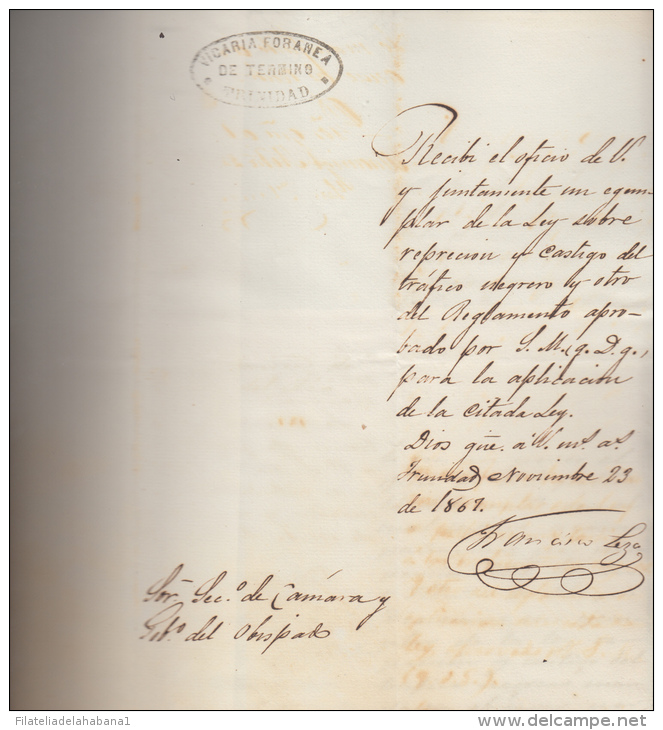 VICARIA FORANEA
DE TERMINO
TRINIDAD
Recibi el oficio de V.
y juntamente un egem-
plar de la Ley sobre
reprecion y castigo del
tráfico negrero y otro
del Reglamento apro-
bado por S. M. (q. D. g.)
para la aplicacion
de la citada Ley.
Dios gũe. á V. ms. as.
Trinidad Noviembre 23
de 1867.
Francisco Leza
Sor. Sec.o de Cámara y
Gob.o del Obispado
Filateliadelahabana1
delcampe.net